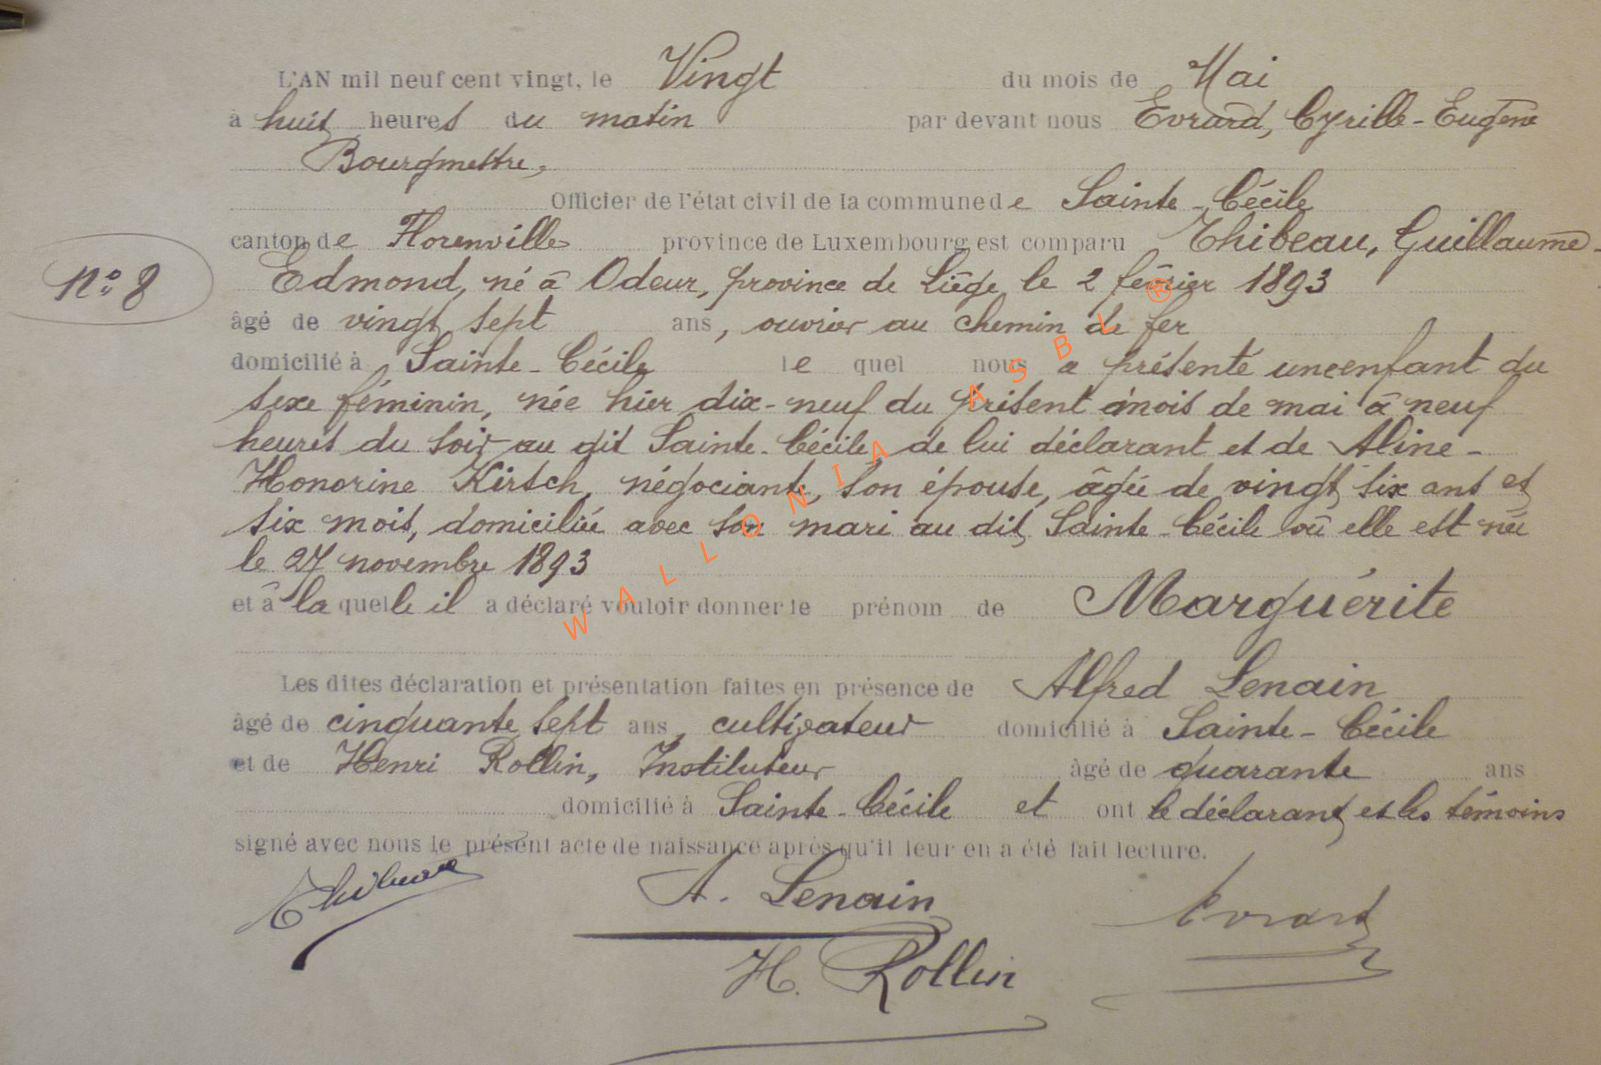 L'AN mil neuf cent vingt, le Vingt du mois de Mai
à huit heures du matin par devant nous Evrard, Cyrille-Eugène
Bourgmestre,
Officier de l'état civil de la commune de Sainte-Cécile
canton de Florenville province de Luxembourg est comparu Thibeau, Guillaume-
Edmond, né à Odeur, province de Liège le 2 février 1893
N° 8
âgé de vingt sept ans, ouvrier au chemin de fer
domicilié à Sainte-Cécile le quel nous a présenté un enfant du
sexe féminin, née hier dix-neuf du présent mois de mai à neuf
heures du soir au dit Sainte-Cécile, de lui déclarant et de Aline-
Honorine Kirsch, négociante, son épouse, âgée de vingt six ans et
six mois, domiciliée avec son mari au dit Sainte-Cécile où elle est née
le 27 novembre 1893
et à la quelle il a déclaré vouloir donner le prénom de Marguérite
Les dites déclaration et présentation faites en présence de Alfred Lenain
âgé de cinquante sept ans, cultivateur domicilié à Sainte-Cécile
et de Henri Rollin, Instituteur âgé de quarante ans
domicilié à Sainte-Cécile et ont le déclarant et les témoins
signé avec nous le présent acte de naissance après qu'il leur en a été fait lecture.
Thibeau A. Lenain Evrard
H. Rollin
WALLONIA ASBL ®